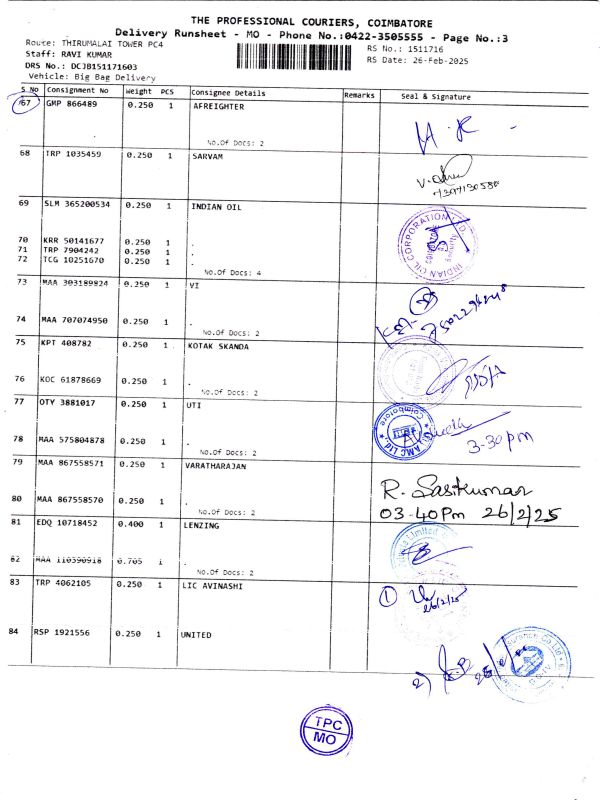 THE PROFESSIONAL COURIERS, COIMBATORE
Delivery Runsheet - MO - Phone No.:0422-3505555 - Page No.:3
Route: THIRUMALAI TOWER PC4
RS No.: 1511716
Staff: RAVI KUMAR
RS Date: 26-Feb-2025
DRS No.: DCJB151171603
Vehicle: Big Bag Delivery
S No Consignment No Weight PCS Consignee Details Remarks Seal & Signature
67 GMP 866489 0.250 1 AFREIGHTER
No.Of Docs: 2
68 TRP 1035459 0.250 1 SARVAM
69 SLM 365200534 0.250 1 INDIAN OIL
INDIAN OIL CORPORATION LTD.
70 KRR 50141677 0.250 1 .
71 TRP 7904242 0.250 1 .
72 TCG 10251670 0.250 1 .
No.Of Docs: 4
73 MAA 303189824 0.250 1 VI
74 MAA 707074950 0.250 1 .
No.Of Docs: 2
75 KPT 408782 0.250 1 KOTAK SKANDA
76 KOC 61878669 0.250 1 .
No.Of Docs: 2
77 OTY 3881017 0.250 1 UTI
Coimbatore
UTI AMC Ltd.
3-30pm
78 MAA 575804878 0.250 1 .
No.Of Docs: 2
79 MAA 867558571 0.250 1 VARATHARAJAN
R. Sasikumar
80 MAA 867558570 0.250 1 .
03-40Pm 26/2/25
No.Of Docs: 2
81 EDQ 10718452 0.400 1 LENZING
82 MAA 110390918 0.705 1 .
No.Of Docs: 2
83 TRP 4062105 0.250 1 LIC AVINASHI
1
26/2/25
84 RSP 1921556 0.250 1 UNITED
2)
TPC
MO